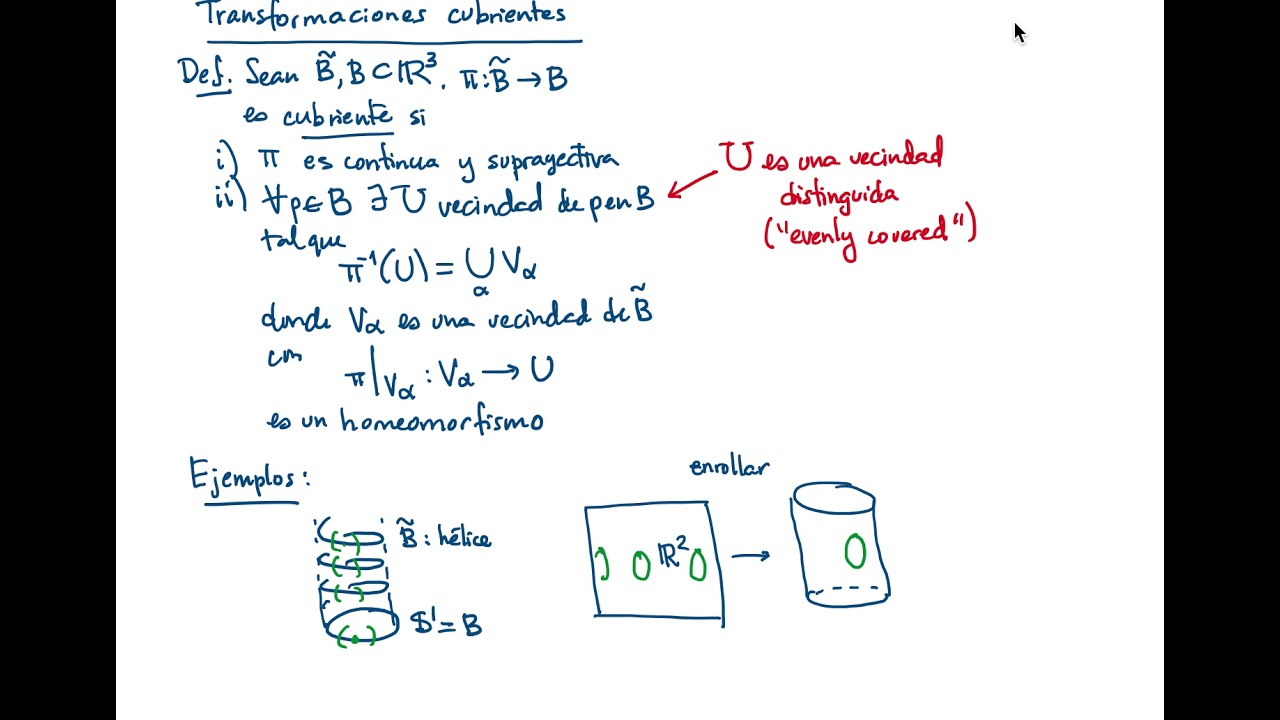 Transformaciones cubrientes
Def. Sean B̃, B ⊂ ℝ³. π: B̃ → B
es cubriente si
i) π es continua y suprayectiva
ii) ∀p∈B ∃ U vecindad de p en B
tal que
π⁻¹(U) = ⋃ Vα
α
donde Vα es una vecindad de B̃
con
π|Vα : Vα → U
es un homeomorfismo
U es una vecindad
distinguida
("evenly covered")
Ejemplos:
B̃: hélice
S¹ = B
enrollar
ℝ²